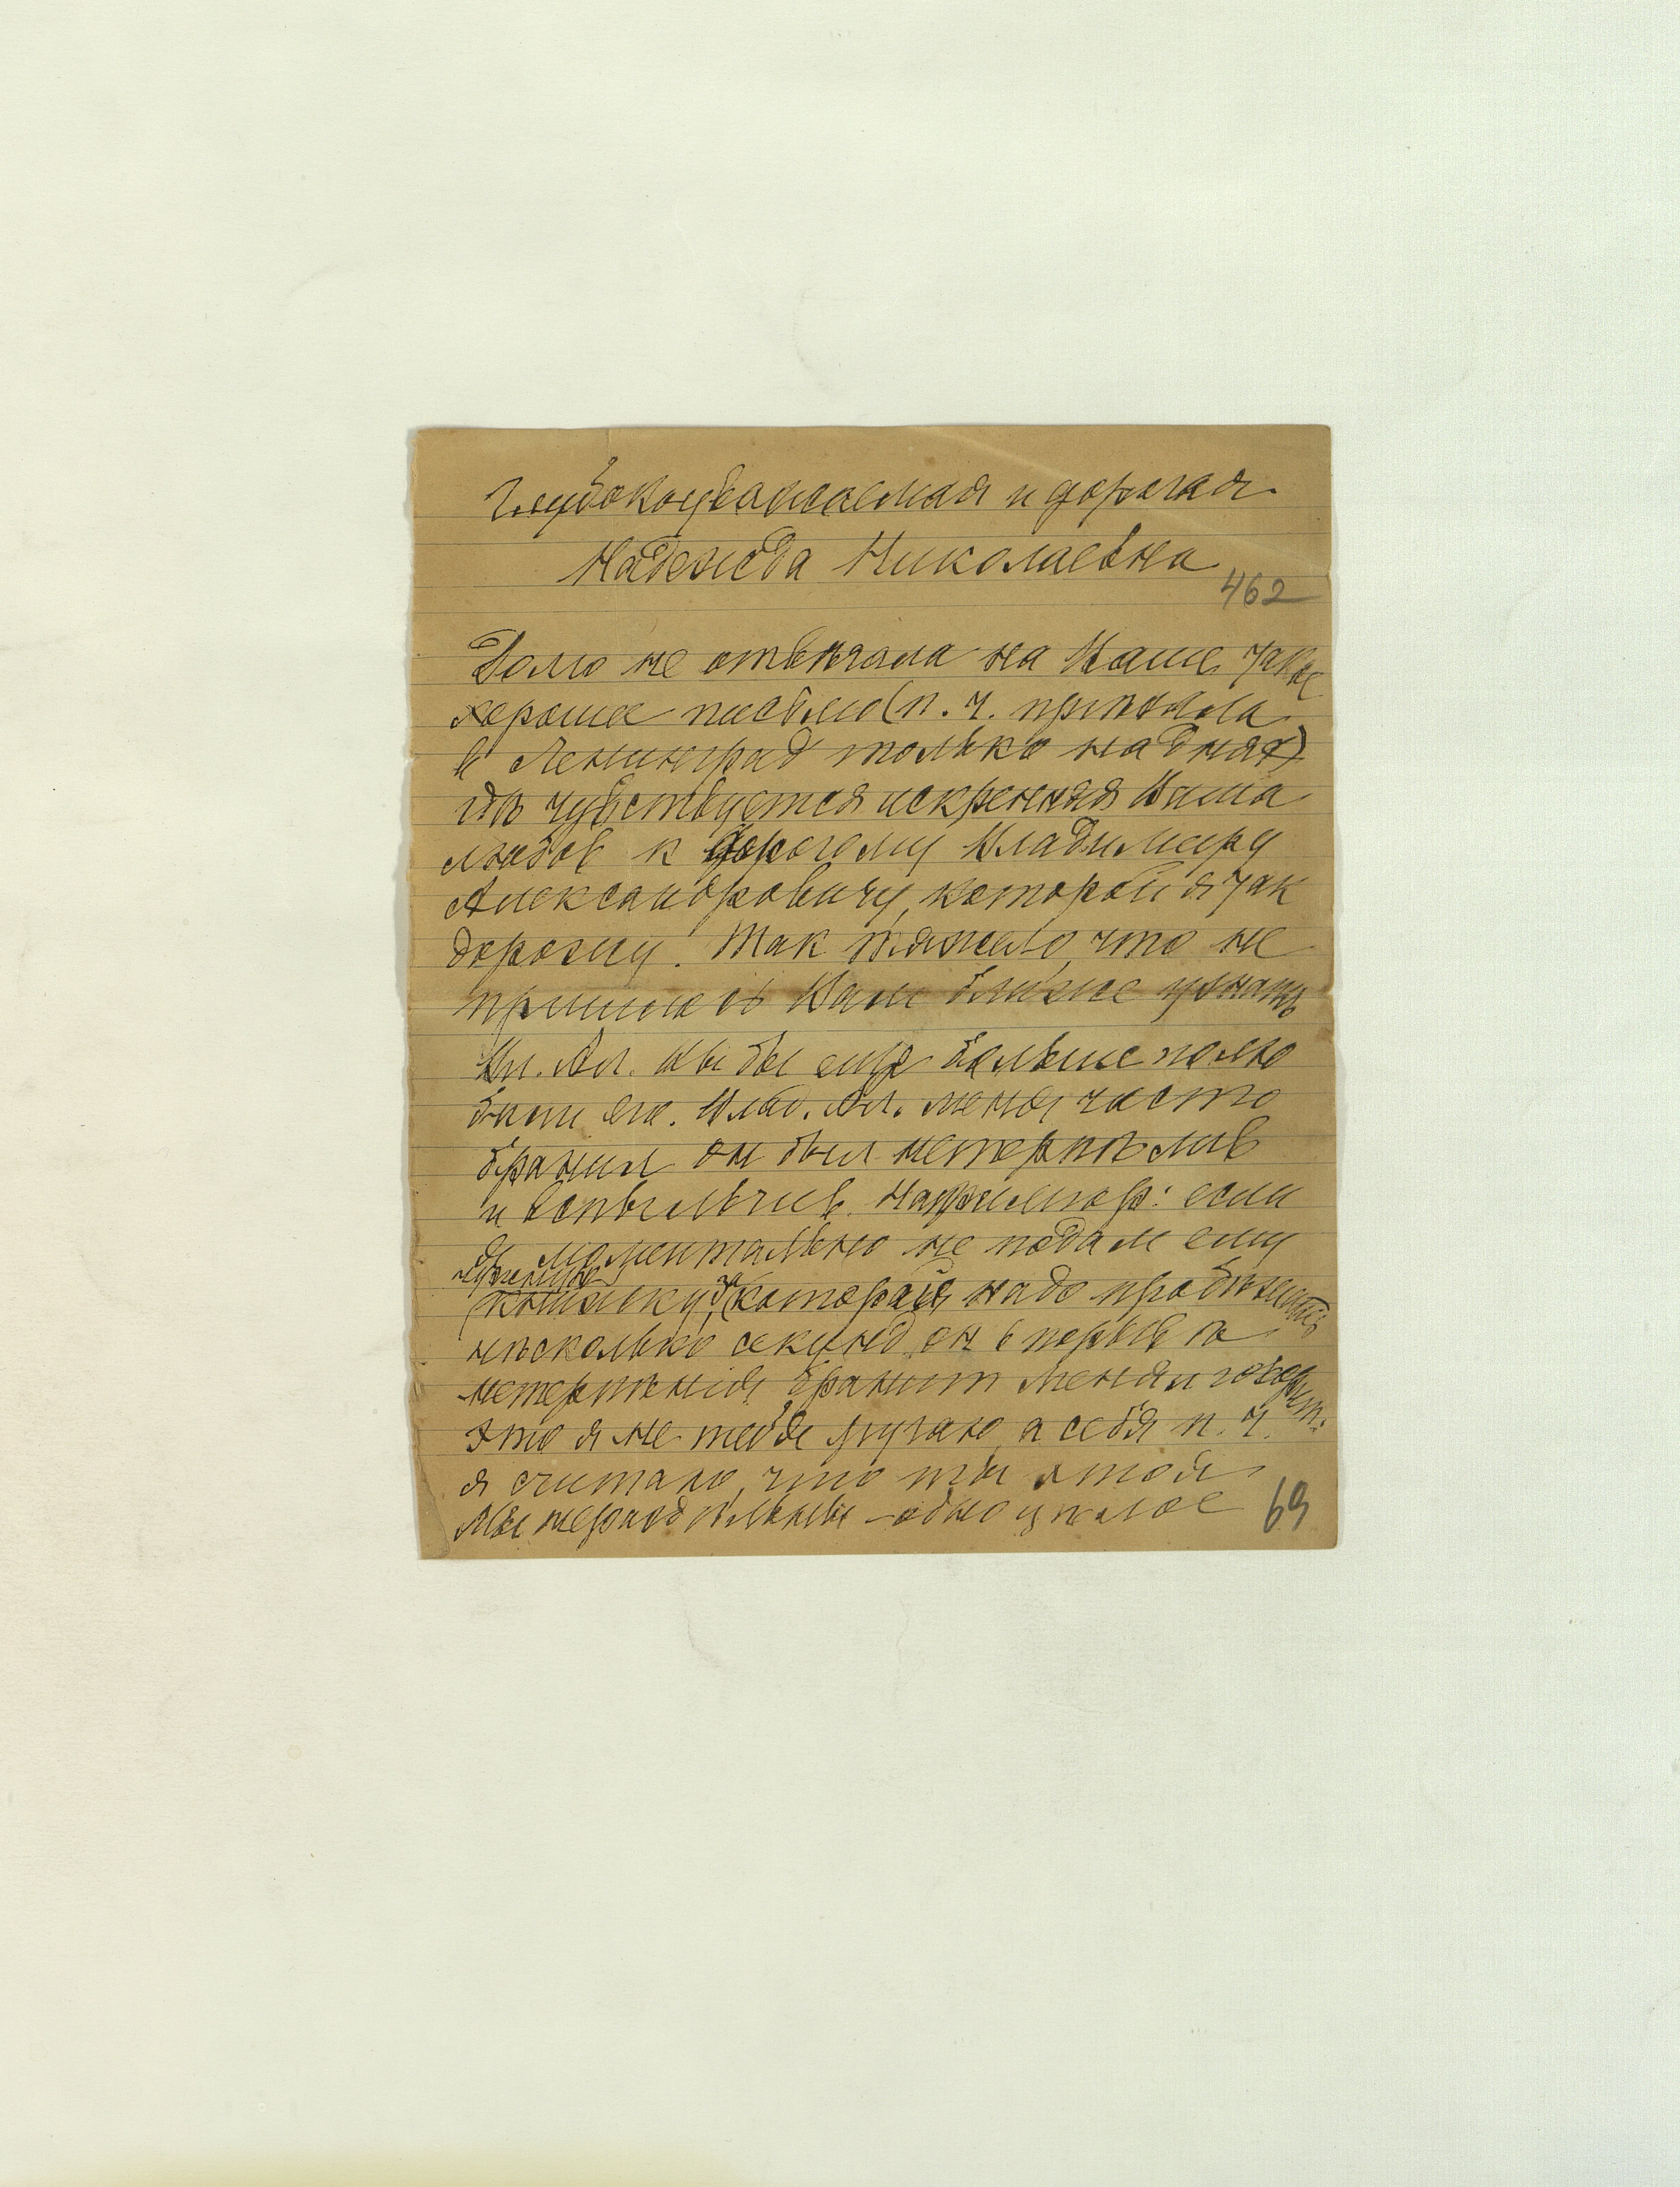 Глубокоуважаемая и дорогая
Надежда Николаевна
462
Долго не отвѣчала на Ваше такое
хорошее письмо (п. ч. приѣхала
в Ленинград только на днях)
гдѣ чувствуется искренняя Ваша
любовь к дорогому Владимиру
Александровичу, которой я так
дорожу. Так тяжело, что не
пришлось Вам ближе узнать
Вл. Ал. Вы бы еще больше полю
били его. Влад. Ал. меня часто
бранил он был нетерпѣлив
и вспыльчив. Например: если
я моментально не подам ему
книжку, за которой надо пробѣжать
нѣсколько секунд, он в порыве
нетерпѣния бранит меня и говорит:
Это я не тебя ругаю, а себя п. ч.
я считаю, что ты и я
Мы нераздѣльны – одно цѣлое
69